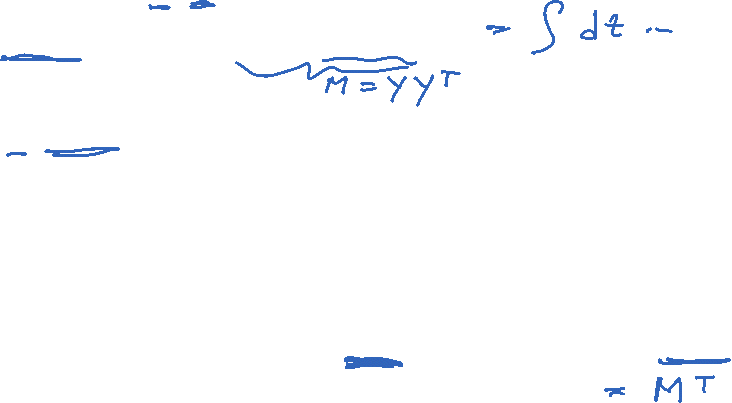 = ∫ dt ...
M = YYᵀ
= Mᵀ